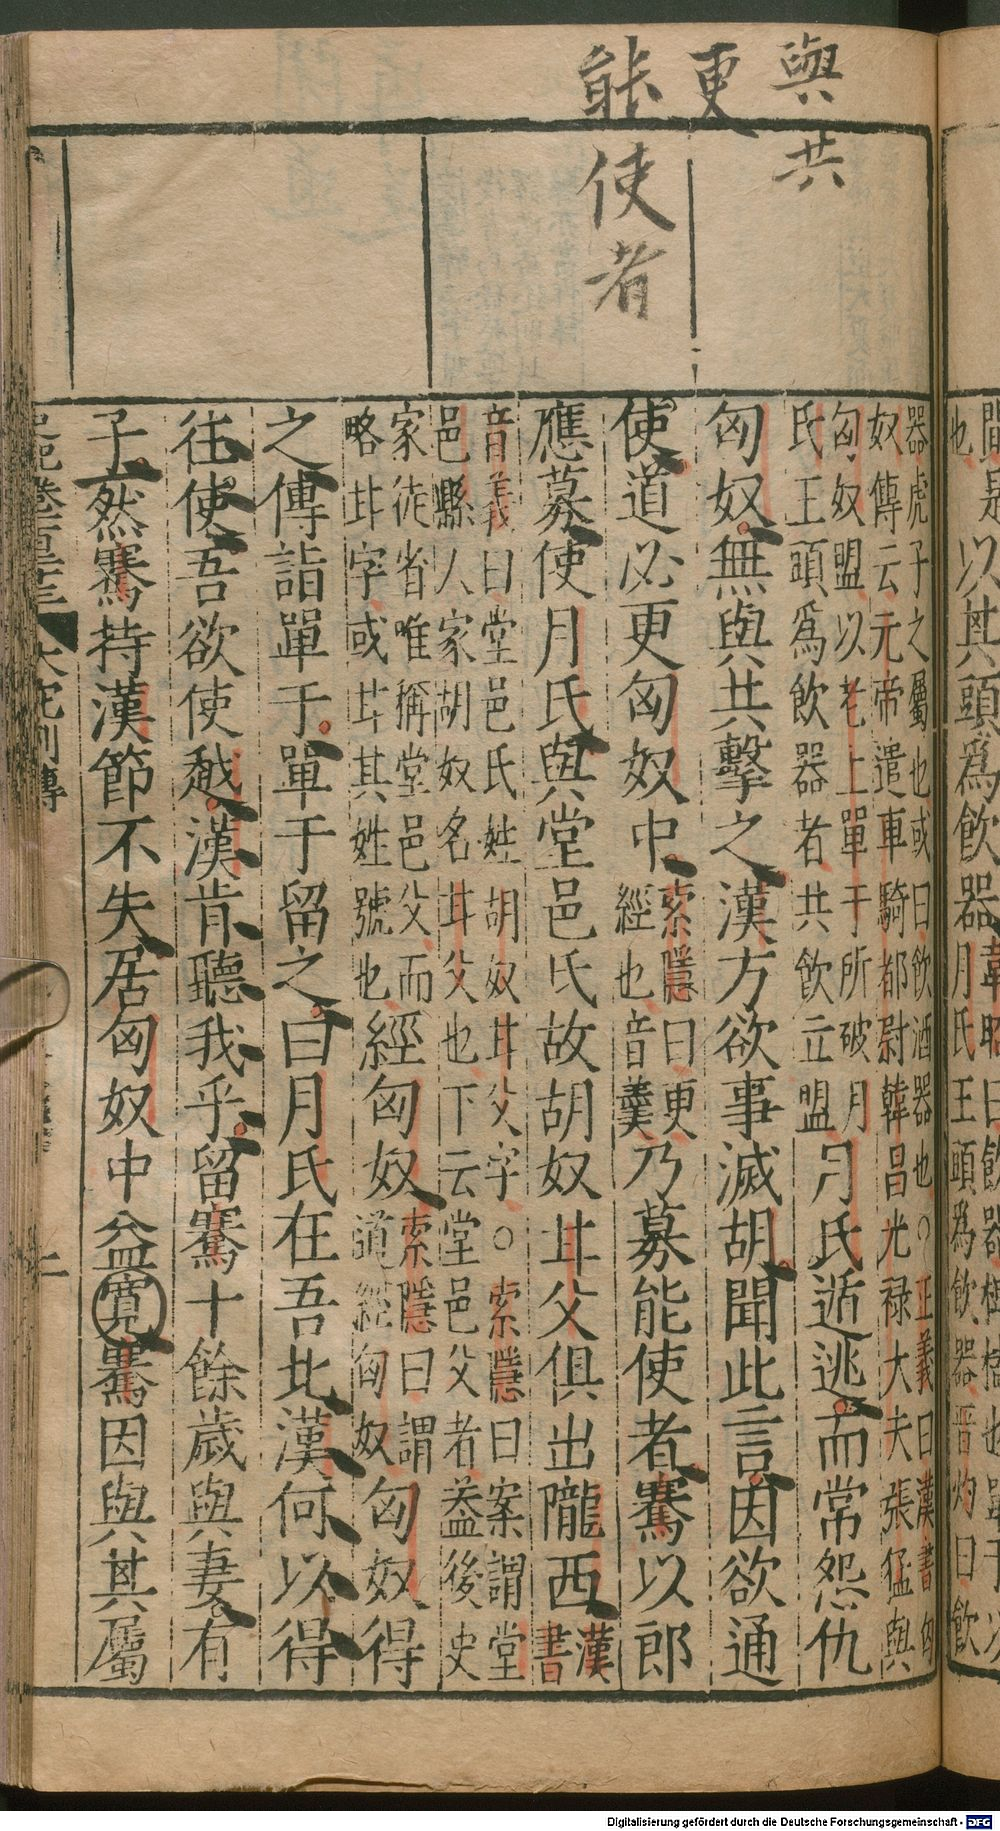 與共
更
能使者
間是以其頭爲飲器
器虎子之屬也或曰飲酒器也○正義曰漢書匈
奴傳云元帝遣車騎都尉韓昌光祿大夫張猛與
匈奴盟以老上單于所破月
氏王頭爲飲器者共飲立盟
月氏遁逃而常怨仇
匈奴無與共擊之漢方欲事滅胡聞此言因欲通
使道必更匈奴中
索隱曰更
經也音羹
乃募能使者騫以郎
應募使月氏與堂邑氏故胡奴甘父俱出隴西
漢
書
音義曰堂邑氏姓胡奴甘父字○索隱曰案謂堂
邑縣人家胡奴名甘父也下云堂邑父者葢後史
家徒省唯稱堂邑父而
略甘字或甘其姓號也
經匈奴
索隱曰謂
道經匈奴
匈奴得
之傳詣單于單于留之曰月氏在吾北漢何以得
往使吾欲使越漢肯聽我乎留騫十餘歲與妻有
子然騫持漢節不失居匈奴中益寬騫因與其屬
史記卷一百二十三 大宛列傳
二
Digitalisierung gefördert durch die Deutsche Forschungsgemeinschaft - DFG